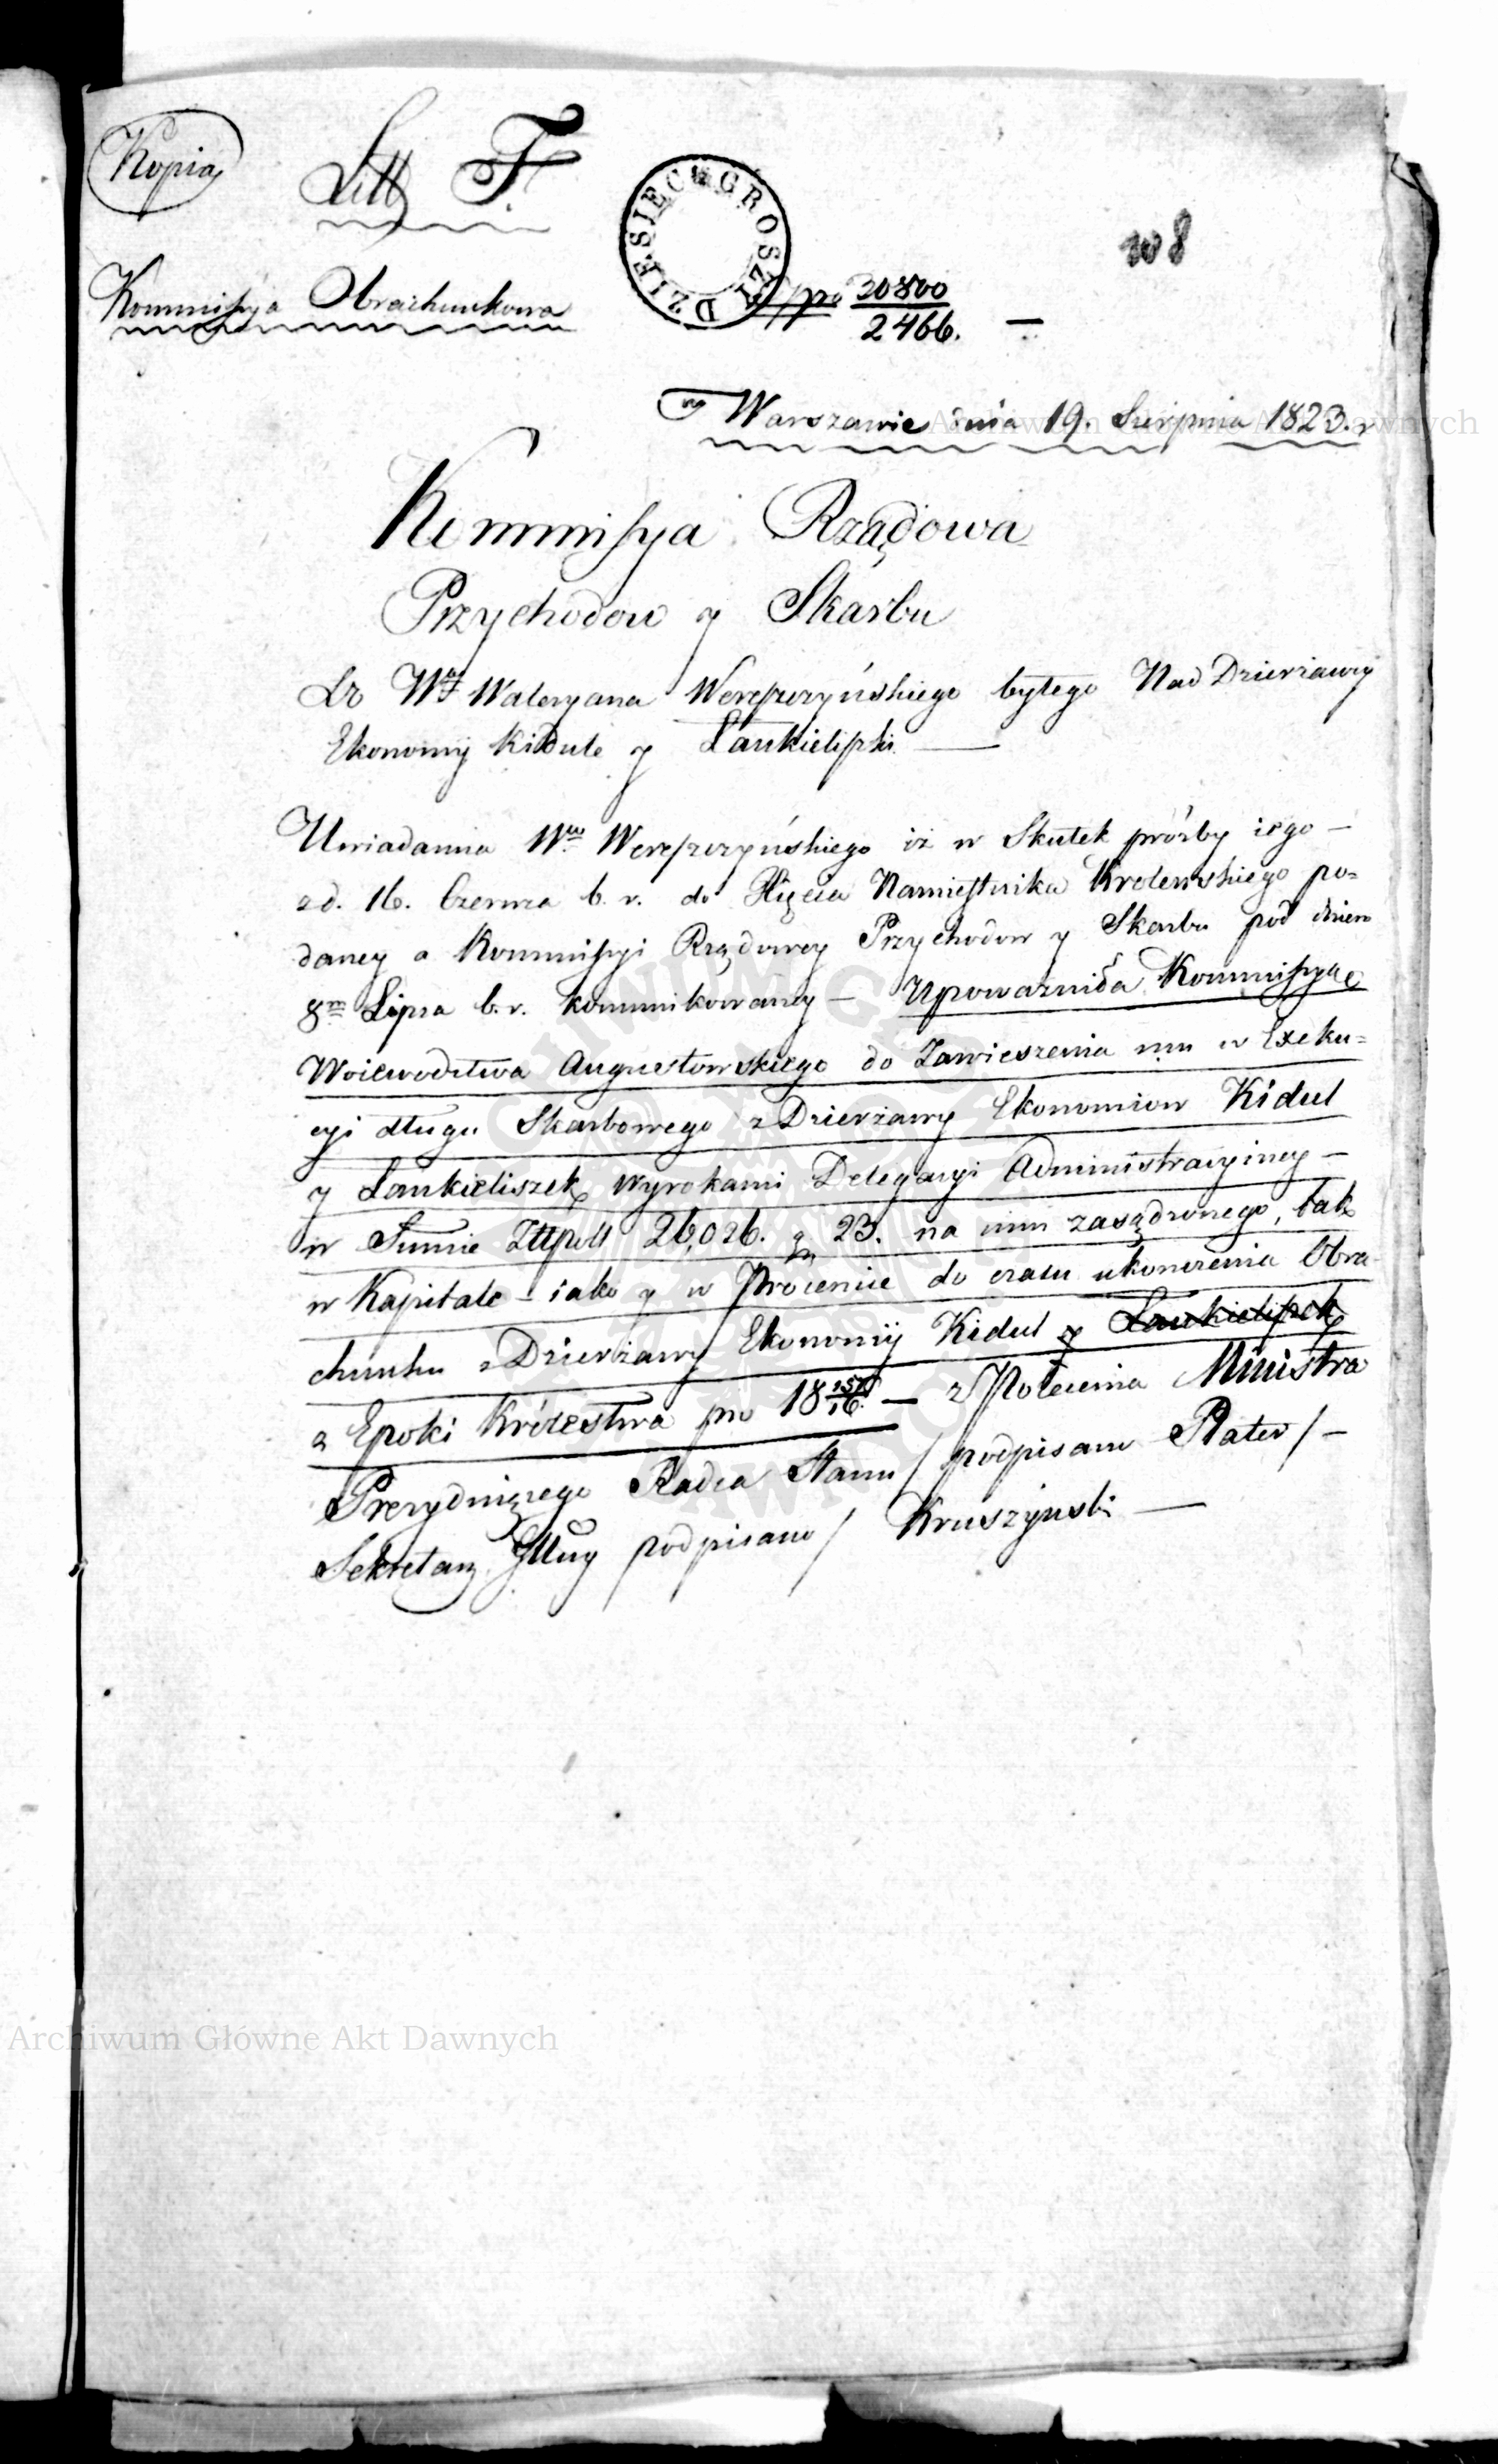 Kopia
Litt F.
DZIESIĘC GROSZY
308
Kommissya Obrachunkowa
pro 20800
2466. —
w Warszawie dnia 19. Sierpnia 1823. r
Kommissya Rządowa
Przychodow y Skarbu
Do Wgo Waleryana Wereszczyńskiego byłego Nad Dzierżawcy
Ekonomij Kidule y Łankieliszki —
Uwiadamia Wgo Wereszczyńskiego iż w Skutek prózby iego —
z d. 16. Czerwca b. r. do Xięcia Namiestnika Krolewskiego po=
daney a Kommissyi Rządowey Przychodow y Skarbu pod dniem
8m Lipca b. r. kommunikowaney — Upoważniła Kommissyąę
Woiewodztwa Augustowskiego do Zawieszenia mu w Exeku=
cyi długu Skarbowego z Dzierżawy Ekonomiow Kidul
y Łankieliszek wyrokami Delegacyi Administracyiney —
w Summie Złtpoll 26,026. g 23. na nim zasądzonego, tak
w Kapitale — iako y w Procencie do czasu ukonczenia Obra
chunku z Dzierżawy Ekonomij Kidul y Łankieliszek
z Epoki Królestwa pro 18 15/16. — z Polecenia Ministra
Prezyduiącego Radca Stanu / podpisano Plater / —
Sekretarz Jlny podpisano / Kruszyński —
Archiwum Główne Akt Dawnych